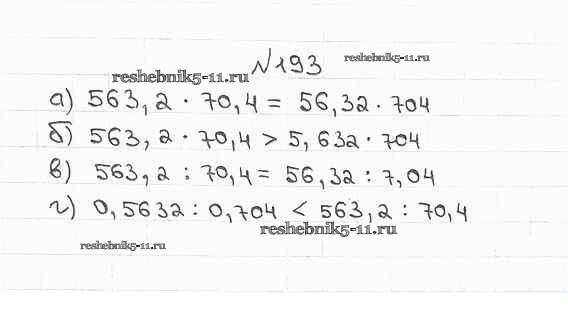 №193
reshebnik5-11.ru
reshebnik5-11.ru
а) 563,2 · 70,4 = 56,32 · 704
б) 563,2 · 70,4 > 5,632 · 704
в) 563,2 : 70,4 = 56,32 : 7,04
г) 0,5632 : 0,704 < 563,2 : 70,4
reshebnik5-11.ru
reshebnik5-11.ru